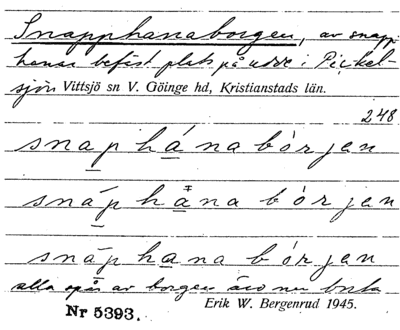 Snapphanaborgen, av snapp-
hanar befäst plats på udde i Pickel-
sjön Vittsjö sn V. Göinge hd, Kristianstads län.
248
snap hána bórjan
snáp hana bórjan
snáp hana bórjan
alla spår av borgen äro nu borta
Erik W. Bergenrud 1945.
Nr 5393.